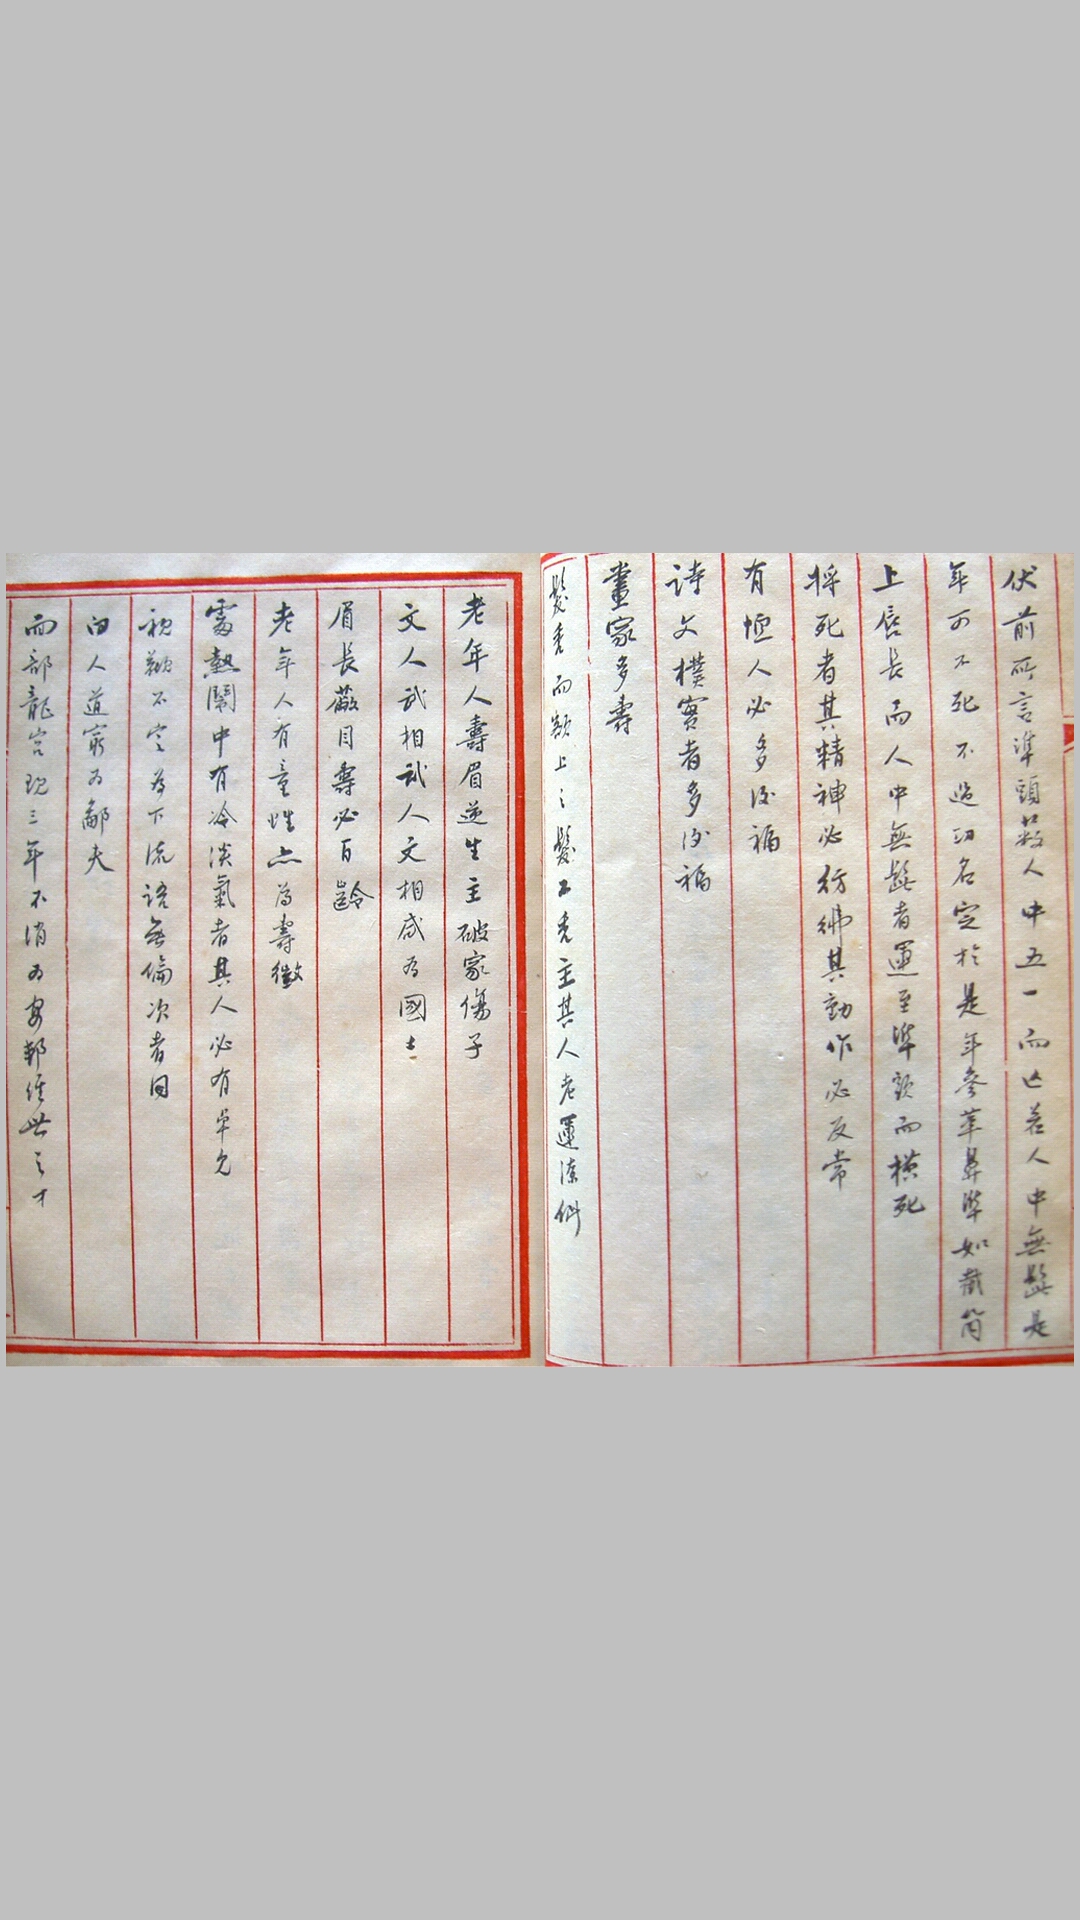 伏前所言準頭救人中五一而亡若人中無髭是
年可不死不過功名定於是年參革鼻準如截筒
上唇長而人中無髭者運至準頭而橫死
將死者其精神必彷彿其動作必反常
有恆人必多後福
詩文樸實者多後福
畫家多壽
髮禿而額上之髮不禿主其人老運潦倒
老年人壽眉逆生主破家傷子
文人武相武人文相咸為國士
眉長蔽目壽必百齡
老年人有童性亦為壽徵
處熱鬧中有冷淡氣者其人必有卓允
視瞻不定為下流語無倫次者同
白人道窮為鄙夫
面部龍宮現三年不消為安邦經世之才